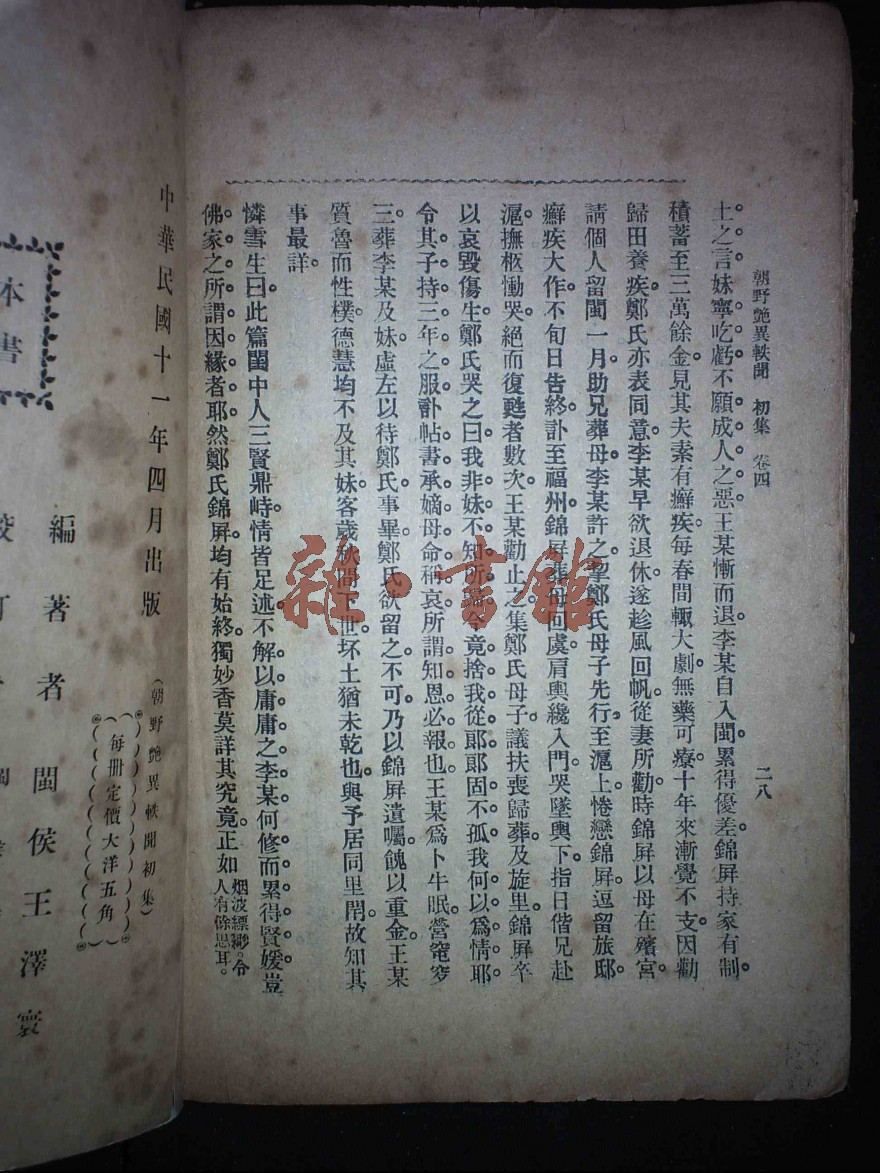 朝野艷異軼聞 初集 卷四
二八
土之言妹寧吃虧不願成人之惡。王某慚而退。李某自入閩。累得優差。錦屏持家有制。
積蓄至三萬餘金。見其夫素有癬疾。每春間輒大劇。無藥可療。十年來漸覺不支。因勸
歸田養疾。鄭氏亦表同意。李某早欲退休。遂趁風回帆。從妻所勸。時錦屏以母在殯宮。
請個人留閩一月。助兄葬母。李某許之。挈鄭氏母子先行。至滬上。惓戀錦屏。逗留旅邸。
癬疾大作。不旬日告終。訃至福州。錦屏葬母回虞。肩輿纔入門。哭墜輿下。指日偕兄赴
滬。撫柩慟哭。絕而復甦者數次。王某勸止之。集鄭氏母子議扶喪歸葬。及旋里。錦屏卒
以哀毀傷生。鄭氏哭之曰。我非妹不知所歸。今竟捨我從郎。郎固不孤。我何以爲情耶。
令其子持三年之服。訃帖書承嫡母命稱哀。所謂知恩必報也。王某爲卜牛眠。營窀穸
三。葬李某及妹。虛左以待鄭氏。事畢。鄭氏欲留之。不可。乃以錦屏遺囑。餽以重金。王某
質魯而性樸。德慧均不及其妹。客歲秋間下世。坏土猶未乾也。與予居同里閈。故知其
事最詳。
憐雪生曰。此篇閨中人三賢鼎峙。情皆足述。不解以庸庸之李某。何修而累得賢媛。豈
佛家之所謂因緣者耶。然鄭氏錦屏。均有始終。獨妙香莫詳其究竟。正如烟波縹緲。令
人有餘思耳。
雜·書館
中華民國十一年四月出版
(朝野艷異軼聞初集)
(每冊定價大洋五角)
本書
編著者 閩侯王澤寰
校訂